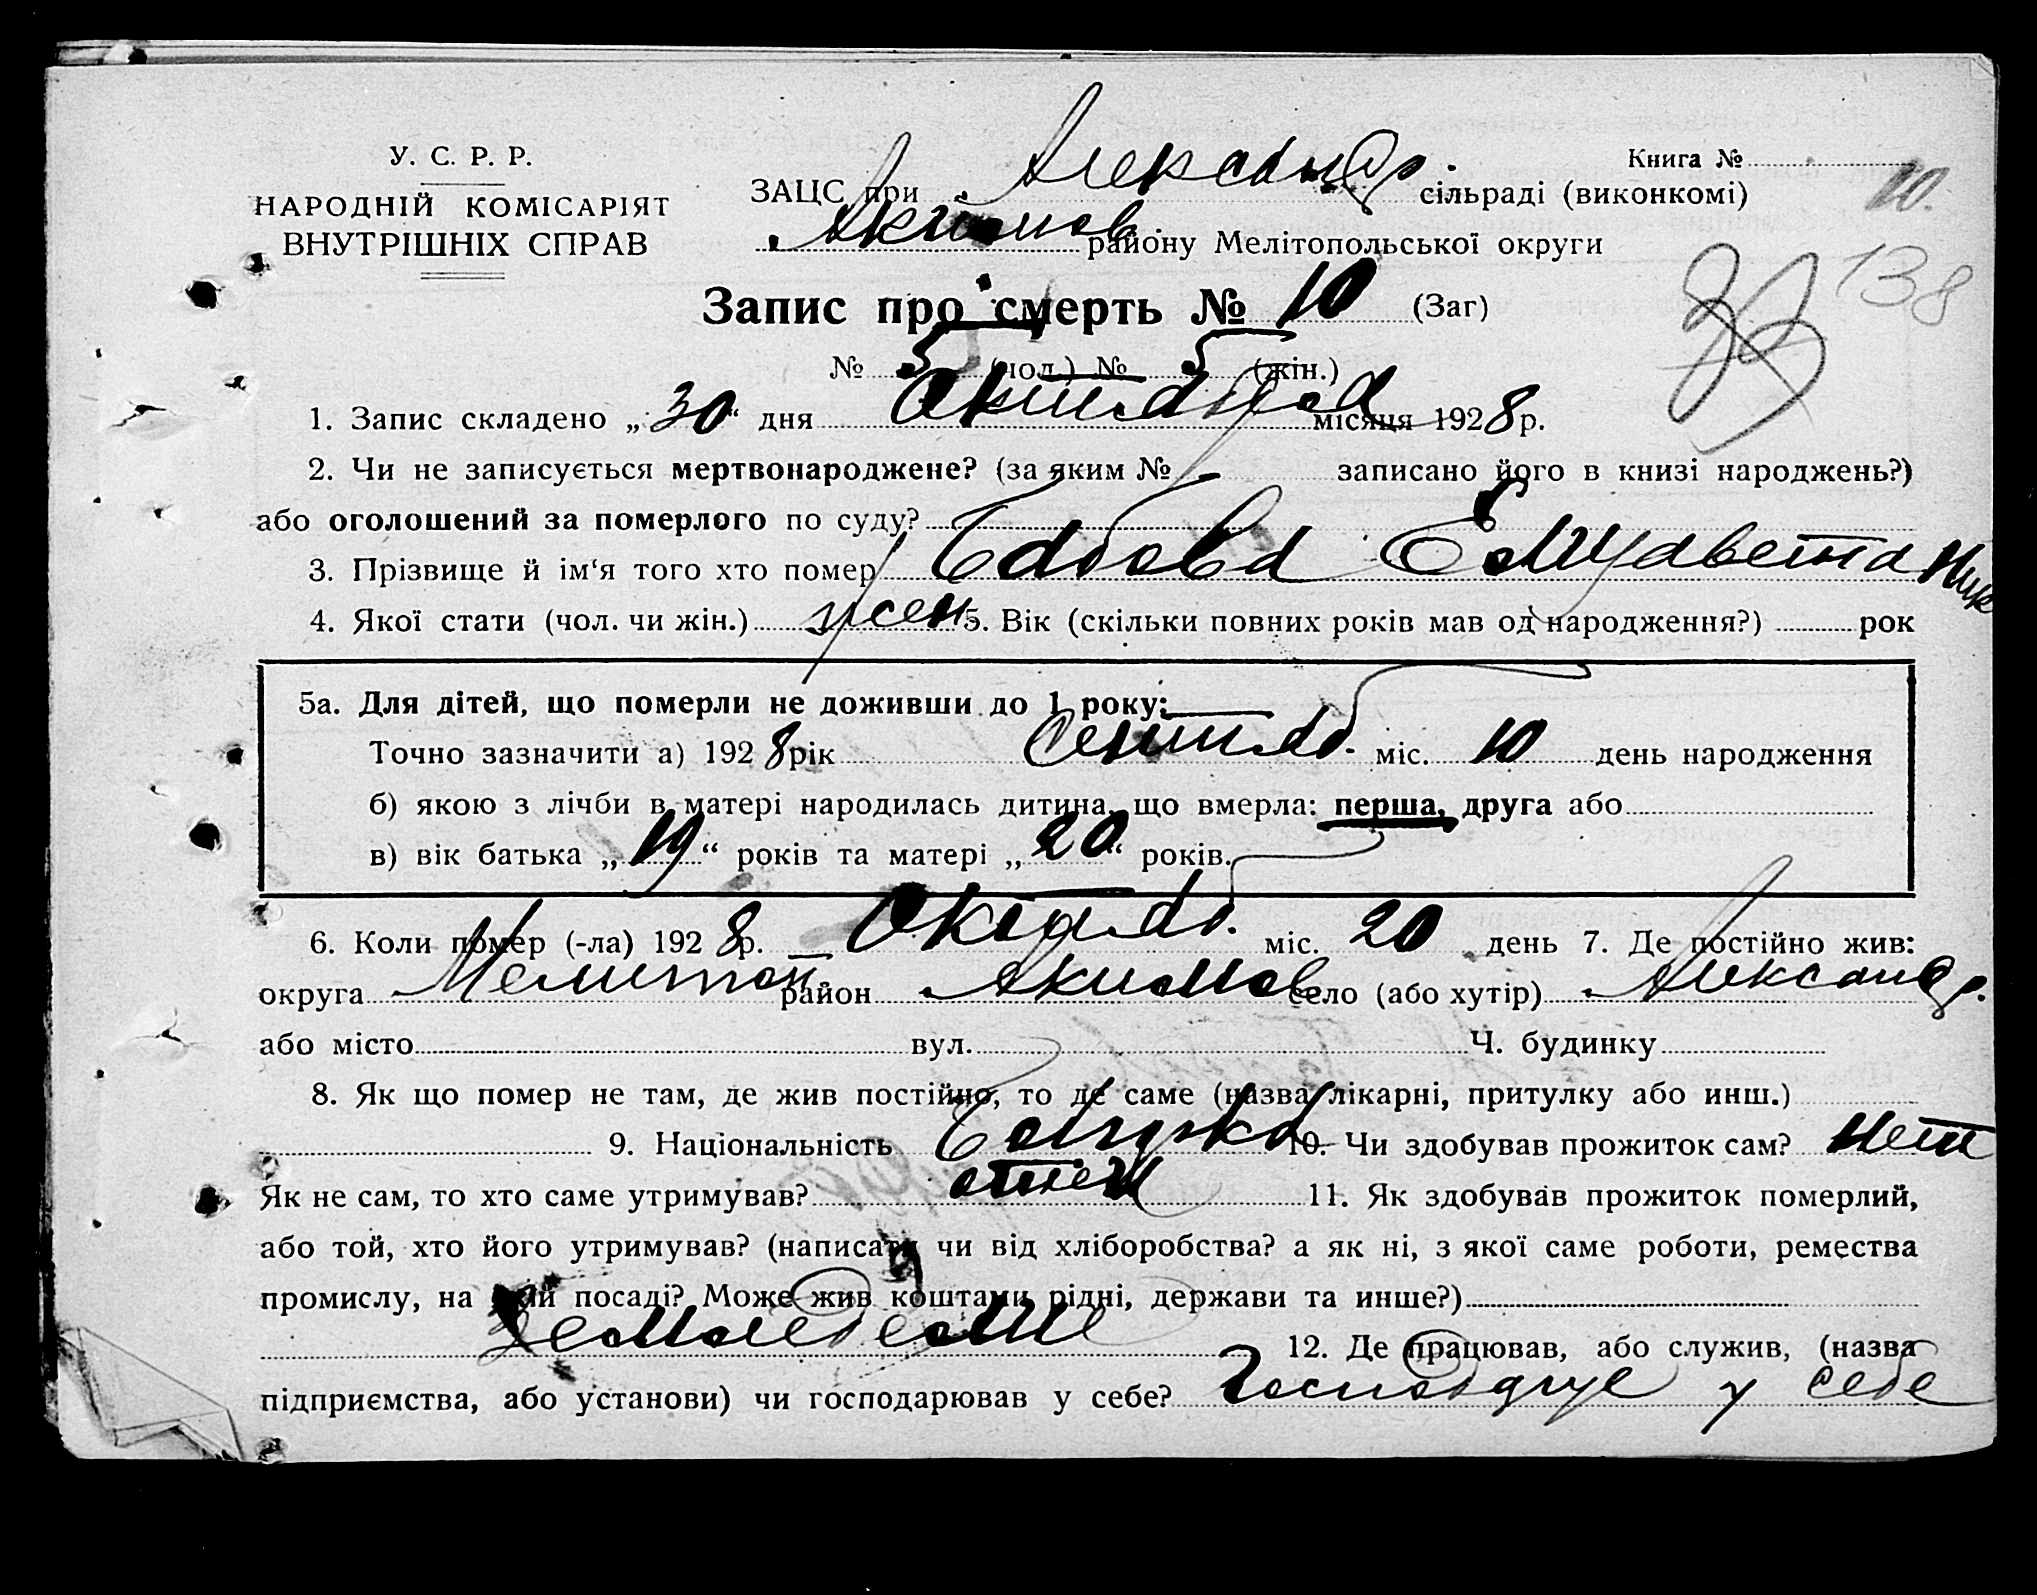 У. С. Р. Р.
НАРОДНІЙ КОМІСАРІЯТ
ВНУТРІШНІХ СПРАВ
Книга №
10.
138
ЗАЦС при Александр. сільраді (виконкомі)
Акимов. району Мелітопольської округи
Запис про смерть № 10 (Заг)
№ 5 (чол.) № 5 (жін.)
1. Запис складено „30“ дня Октября місяця 1928 р.
2. Чи не записується мертвонароджене? (за яким № – записано його в книзі народжень?)
або оголошений за померлого по суду?
3. Прізвище й ім‘я того хто помер Бабова Елизавета Ник
4. Якої стати (чол. чи жін.) жен. 5. Вік (скільки повних років мав од народження?) рок
5а. Для дітей, що померли не доживши до 1 року:
Точно зазначити а) 1928 рік Сентяб. міс. 10 день народження
б) якою з лічби в матері народилась дитина, що вмерла: перша, друга або
в) вік батька „19“ років та матері „20“ років.
6. Коли помер (-ла) 1928 р. Октяб. міс. 20 день 7. Де постійно жив:
округа Мелитоп. район Акимов село (або хутір) Александр.
або місто вул. Ч. будинку
8. Як що помер не там, де жив постійно, то де саме (назва лікарні, притулку або инш.)
9. Національність 10. Чи здобував прожиток сам? нет
Як не сам, то хто саме утримував? отец 11. Як здобував прожиток померлий,
або той, хто його утримував? (написати чи від хліборобства? а як ні, з якої саме роботи, ремества
промислу, на якій посаді? Може жив коштами рідні, держави та инше?)
12. Де працював, або служив, (назва
підприємства, або установи) чи господарював у себе? Господарує у себе